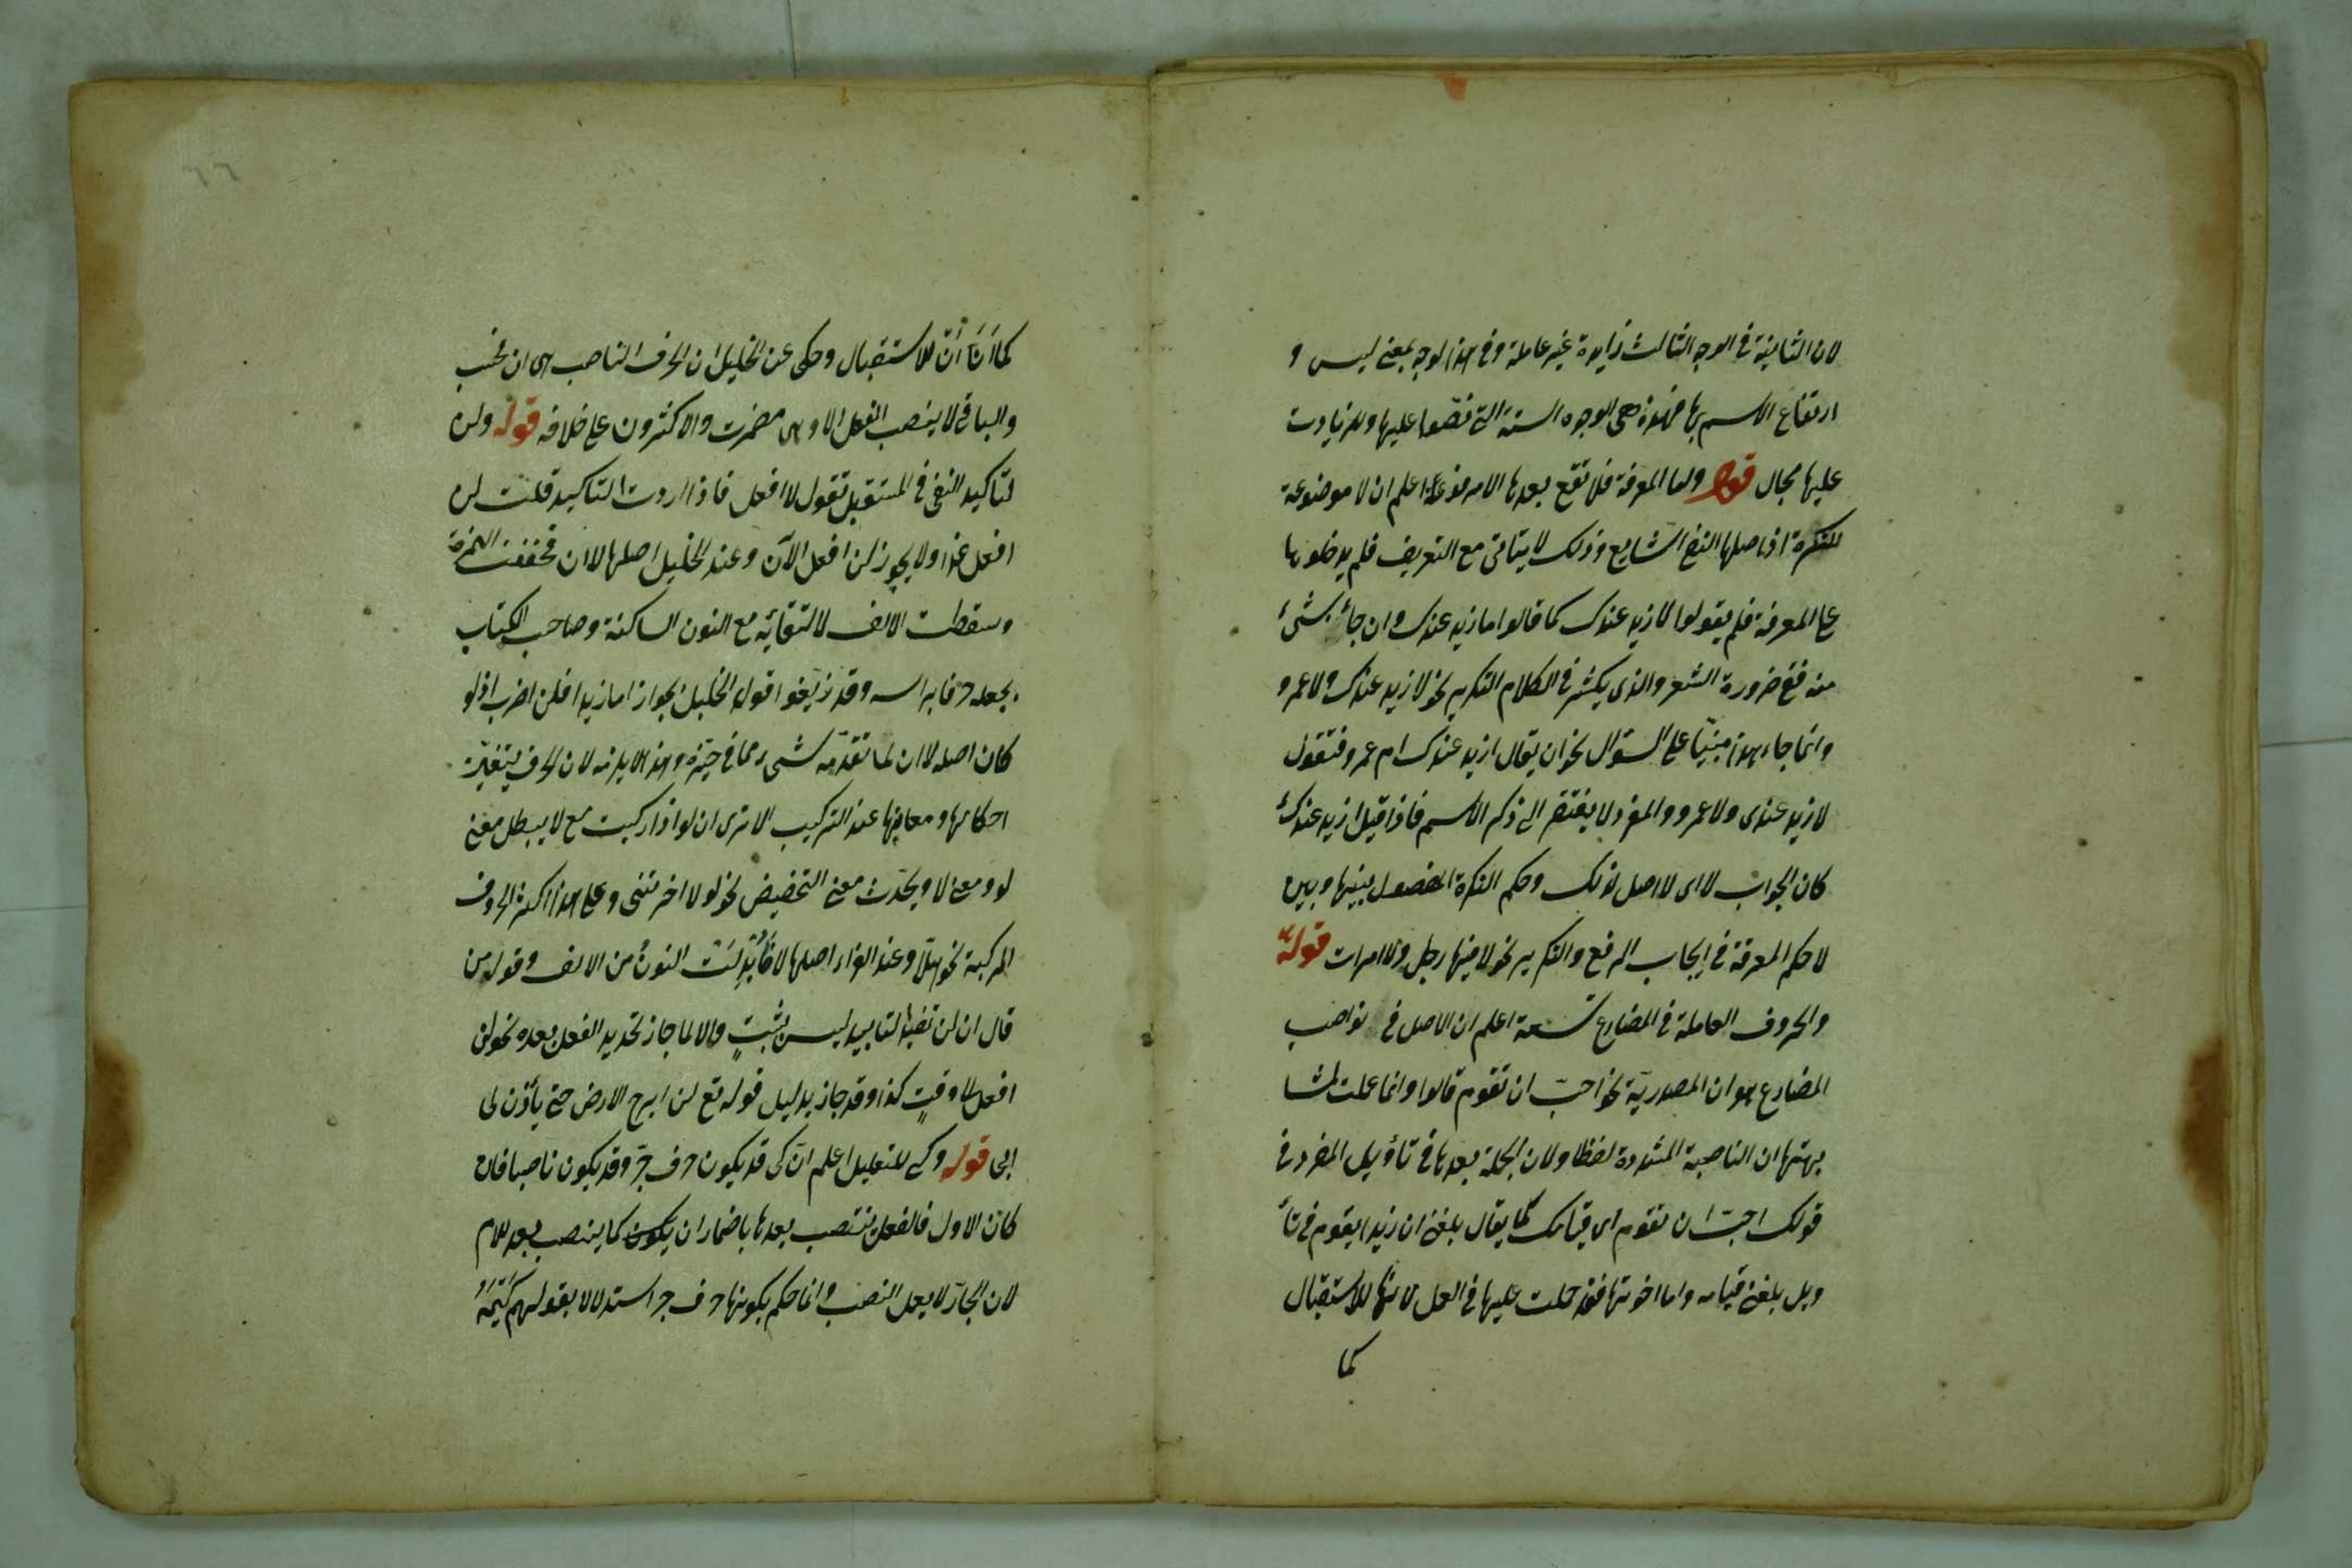 لان الثانية في الوجه الثالث زايدة غير عاملة وفي هذا الوجه بمعنى ليس و
ارتفاع الاسم بها فهذه هي الوجوه الستة التي نصّوا عليها وللزيادت
عليها مجال قوله واما المعرفة فلا تقع بعدها الا مرفوعة اعلم ان لا موضوعة
للنكرة اذ اصلها النفي الشايع وذلك لا يتاتى مع التعريف فلم يدخلوها
على المعرفة فلم يقولوا لا زيد عندك كما قالوا ما زيد عندك وان جاء شئ
منه ففي ضرورة الشعر والذي يكثر في الكلام التكرير نحو لا زيد عندك ولا عمرو
وانما جاء هذا مبنيّا على السؤال نحو ان يقال ازيد عندك ام عمرو فتقول
لا زيد عندى ولا عمرو والمفرد لا يفتقر الى ذكر الاسم فاذا قيل ازيد عندك
كان الجواب لا اى لا اصل لذلك وحكم النكرة المفصول بينها وبين
لا حكم المعرفة في ايجاب الرفع والتكرير نحو لا فيها رجل ولا امرات قوله
والحروف العاملة في المضارع تسعة اعلم ان الاصل في نواصب
المضارع هو ان المصدريّة نحو احبّ ان تقوم قالوا وانما عملت لمشا
بهتها ان الناصبة المشددة لفظا ولان الجملة بعدها في تاؤيل المفرد في
قولك احبّ ان تقوم اى قيامك كما يقال بلغني ان زيدا يقوم في تأ
ويل بلغني قيامه واما اخوتها فقد حملت عليها في العمل لانها للاستقبال
كما
كما انّ أنْ للاستقبال وحكى عن الخليل ان الحرف الناصب هى ان فحسب
والباقي لا ينصب الفعل الا وهى مضمرت والاكثرون على خلافه قوله ولن
لتاكيد النفى في المستقبل تقول لا افعل فاذا اردت التاكيد قلت لن
افعل غدا ولا يجوز لن افعل الآن وعند الخليل اصلها لا ان فخففت الهمزة
وسقطت الالف لالتقائه مع النون الساكنة وصاحب الكتاب
يجعله حرفا براسه وقد زيّفوا قول الخليل بجواز اما زيدا فلن اضرب اذ لو
كان اصله لا ان لما تقدّمه شىء مما في حيّزه وهذا لا يلزمه لان الحرف يتغيّر
احكامها ومعانيها عند التركيب الا ترى ان لو اذا ركبت مع لا يبطل معنى
لو ومعنى لا ويحدث معنى التحضيض نحو لولا اخرتنى وعلى هذا اكثر الحروف
المركبة نحو هلّا وعند الفراء اصلها لا فأُبْدِلَتْ النونُ من الالف وقول من
قال ان لن تفيد التابيد ليس بثبتٍ والا لما جاز تحديد الفعل بعده نحو لن
افعل الى وقتٍ كذا وقد جاز بدليل قوله تع لن ابرح الارض حتى يأذن لى
ابى قوله وكى للتعليل اعلم انّ كى قد يكون حرف جرّ وقد يكون ناصبا فان
كان الاول فالفعل ينتصب بعدها باضمار ان يكون كما ينتصب بعد للام
لان الجارّ لا يعمل النصب وانما حكم بكونها حرف جر استدلالا بقولهم كَيْمَهْ